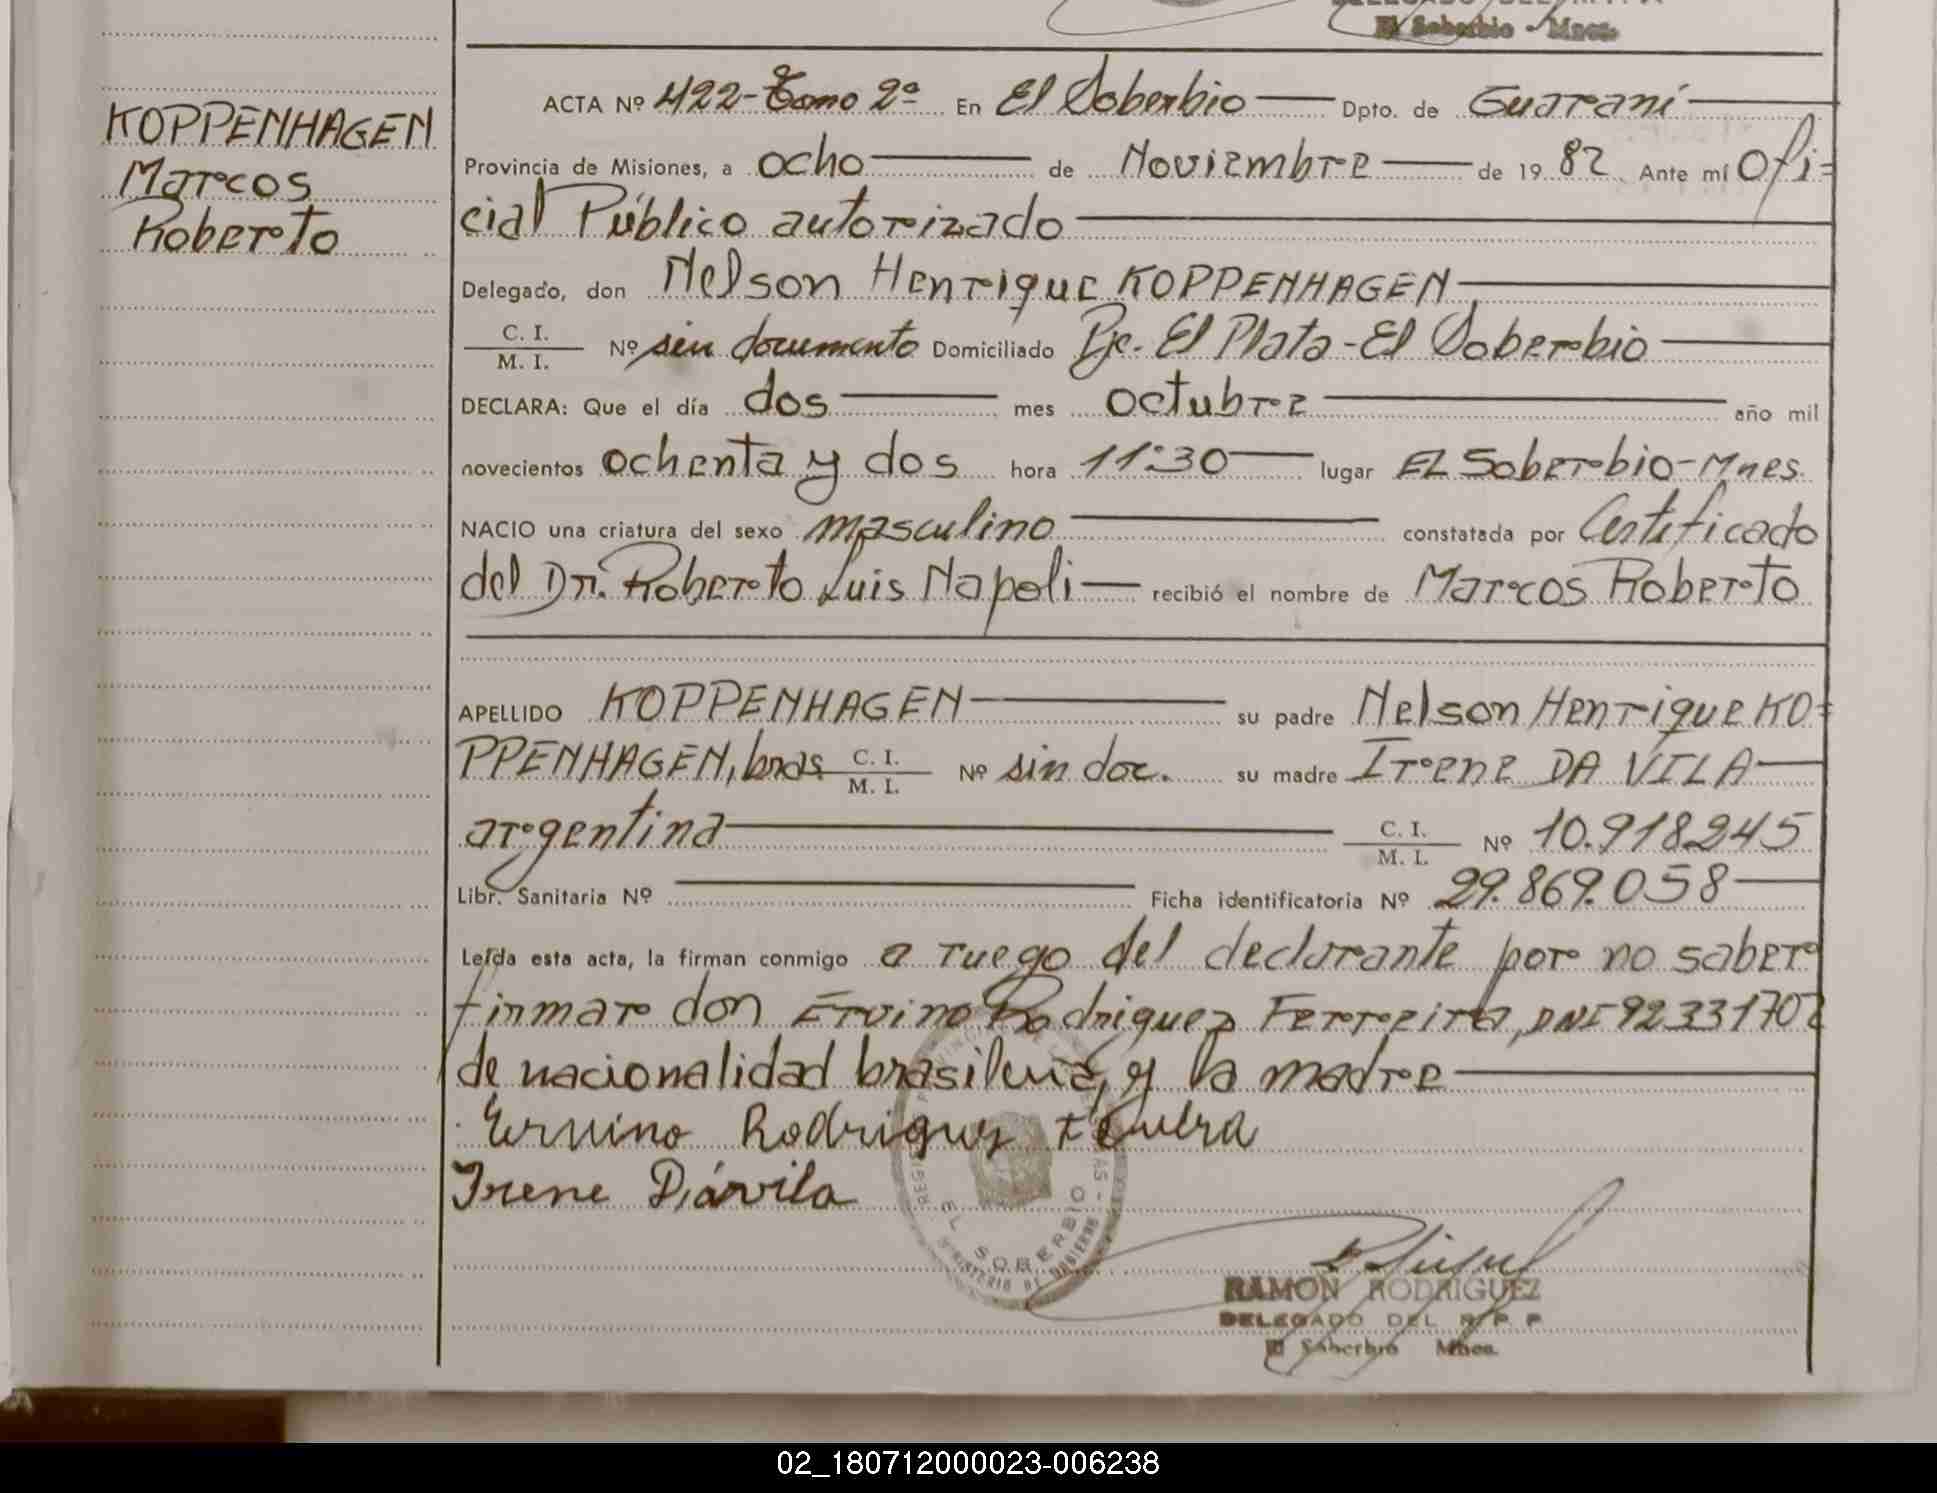 El Soberbio - Mnes.
KOPPENHAGEN
Marcos
Roberto
ACTA Nº 422-Tomo 2º En El Soberbio Dpto. de Guaraní
Provincia de Misiones, a ocho de Noviembre de 19 82 Ante mí Ofi=
cial Público autorizado
Delegado, don Nelson Henrique KOPPENHAGEN
C. I.
M. I. Nº sin documento Domiciliado Pje. El Plata-El Soberbio
DECLARA: Que el día dos mes octubre año mil
novecientos ochenta y dos hora 11:30 lugar EL Soberbio-Mnes.
NACIO una criatura del sexo masculino constatada por Certificado
del Dr. Roberto Luis Napoli recibió el nombre de Marcos Roberto
APELLIDO KOPPENHAGEN su padre Nelson Henrique KO=
PPENHAGEN, bras C. I.
M. I. Nº sin doc. su madre Irene DA VILA
argentina C. I.
M. I. Nº 10.918.245
Libr. Sanitaria Nº Ficha identificatoria Nº 29.869.058
Leída esta acta, la firman conmigo a ruego del declarante por no saber
firmar don Ervino Rodriguez Ferreira, DNI 92331702
de nacionalidad brasilera, y la madre
Ervino Rodriguez
Irene Dávila
EL SOBERBIO
MINISTERIO DE GOBIERNO
RAMON RODRIGUEZ
DELEGADO DEL R. P. P
El Soberbio Mnes.
02_180712000023-006238